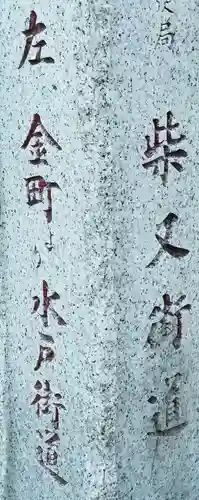 柴又街道
左 金町より 水戸街道